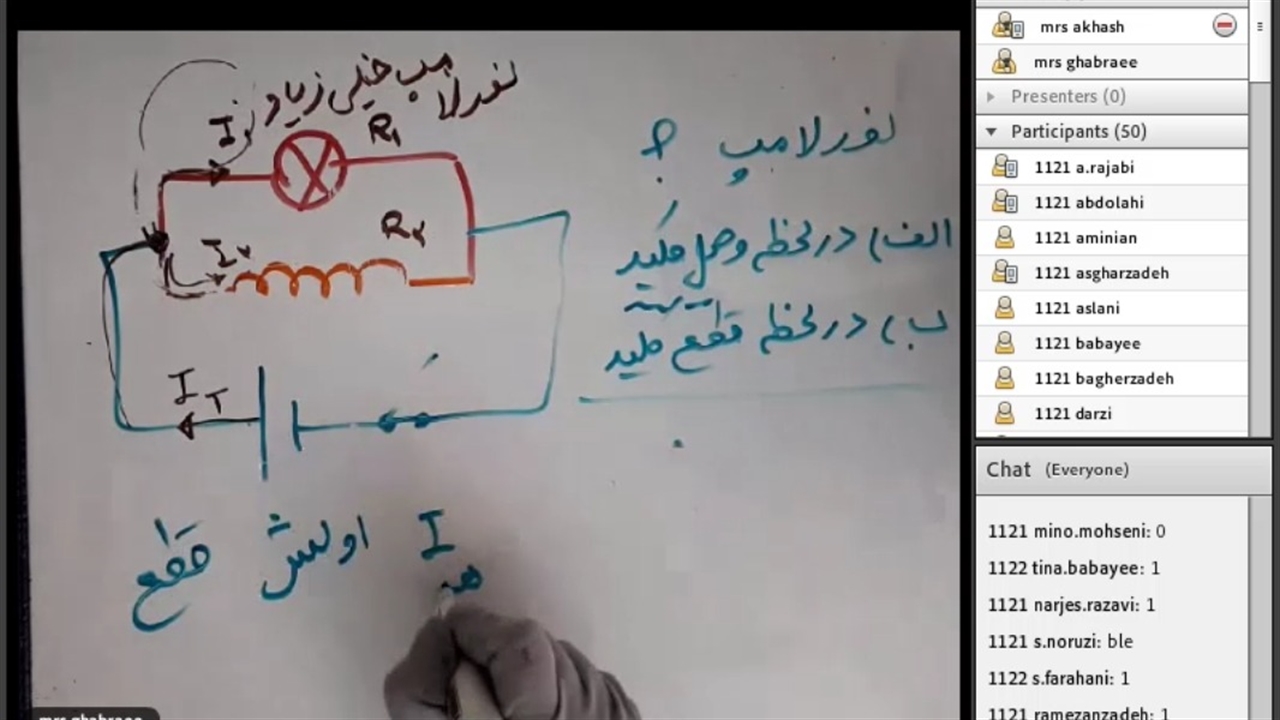 نور لامپ خیلی زیاد
I₁
R₁
I₂
R₂
I T
نور لامپ ؟
الف) در لحظه وصل کلید
ب) در لحظه قطع کلید
I اولش قطع
mrs ghabraee
mrs akhash
mrs ghabraee
Presenters (0)
Participants (50)
1121 a.rajabi
1121 abdolahi
1121 aminian
1121 asgharzadeh
1121 aslani
1121 babayee
1121 bagherzadeh
1121 darzi
Chat (Everyone)
1121 mino.mohseni: 0
1122 tina.babayee: 1
1121 narjes.razavi: 1
1121 s.noruzi: ble
1122 s.farahani: 1
1121 ramezanzadeh: 1